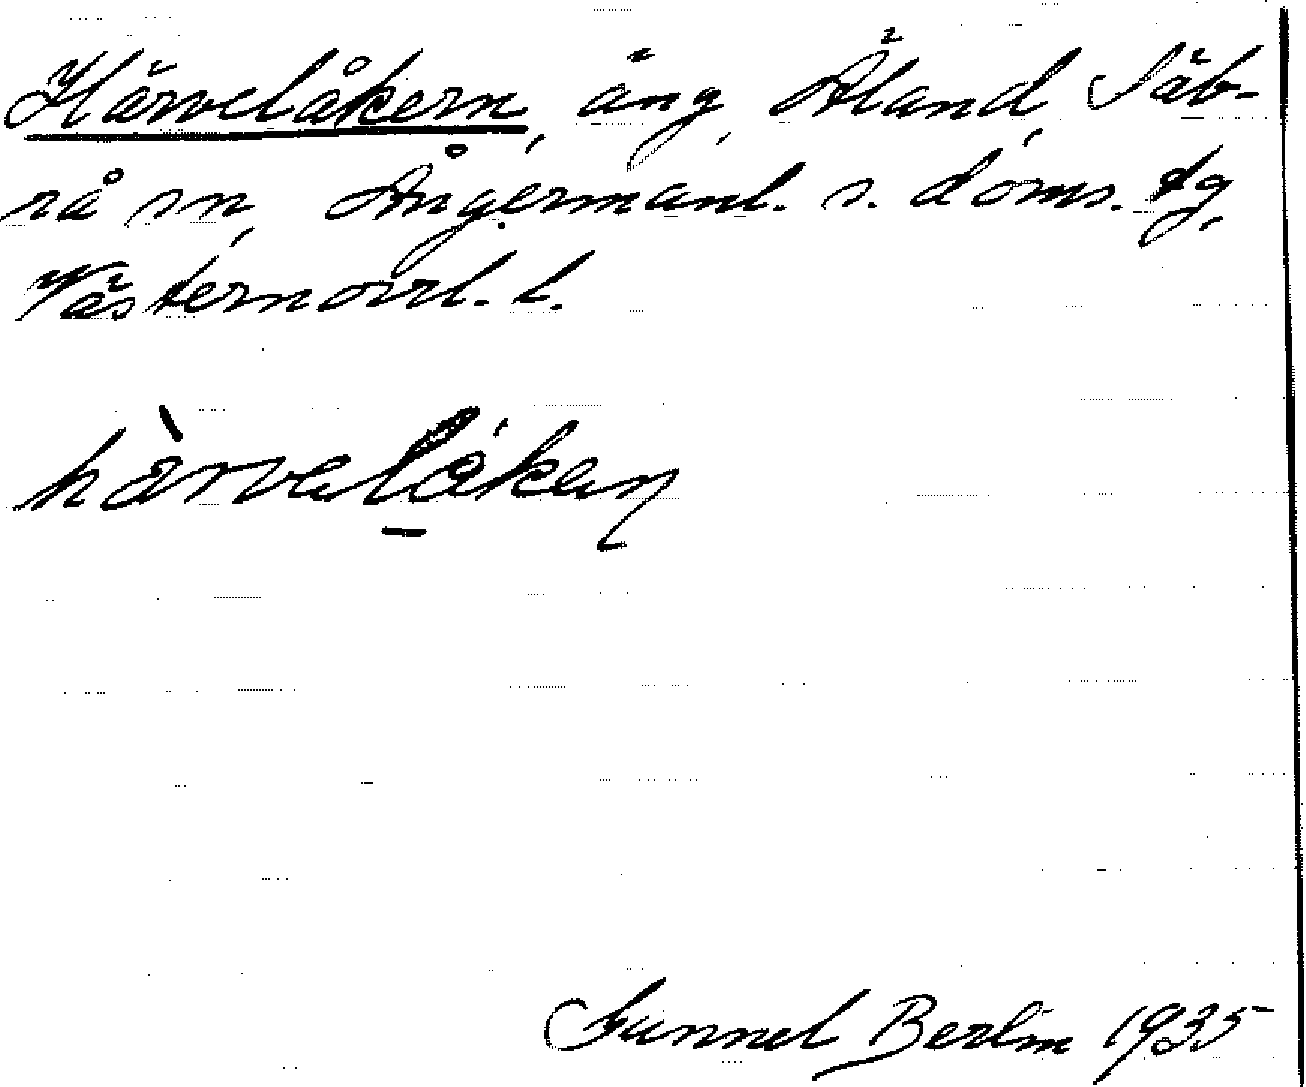 Härvelåkern, äng, Äland, Säb-
rå sn, Ångermanl. s. doms. tg,
Västernorrl. l.
hàrvelåkeṇ
Gunnel Berlin 1935